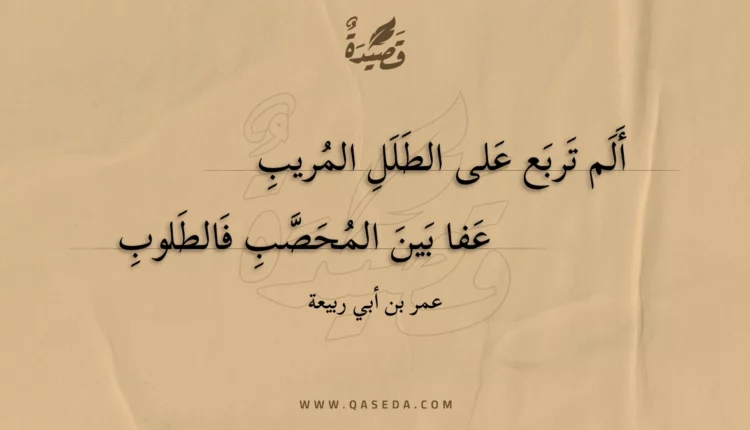 قَصِيْدَةٌ
أَلَم تَربَع عَلى الطَلَلِ المُريبِ
عَفا بَينَ المُحَصَّبِ فَالطَلوبِ
عمر بن أبي ربيعة
WWW.QASEDA.COM